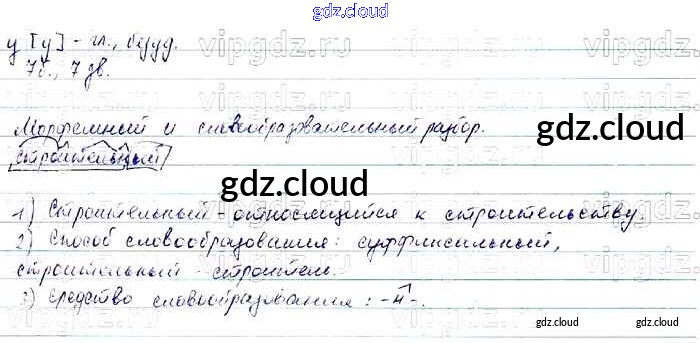 gdz.cloud
у [у] - гл., безуд.
7б., 7 зв.
Морфемный и словообразовательный разбор.
строительный
gdz.cloud
gdz.cloud
1) Строительный - относящийся к строительству.
2) Способ словообразования: суффиксальный,
строительный - строитель.
3) Средство словообразования: -н-.
gdz.cloud
gdz.cloud